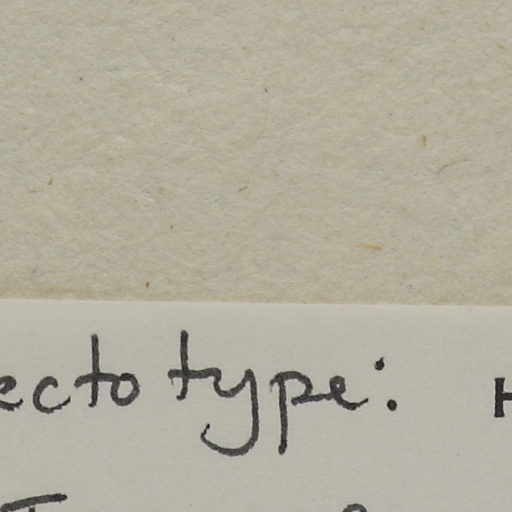 ectotype: H